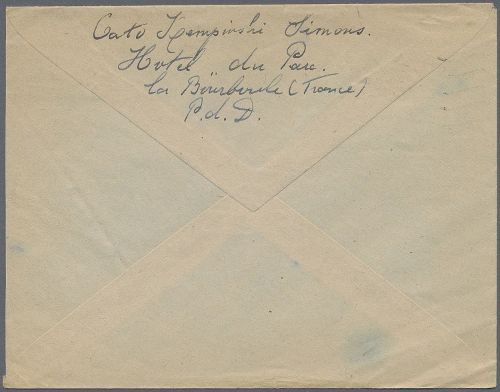 Cato Kempinski Simons.
Hotel du Parc.
La Bourboule (France)
P.d.D.